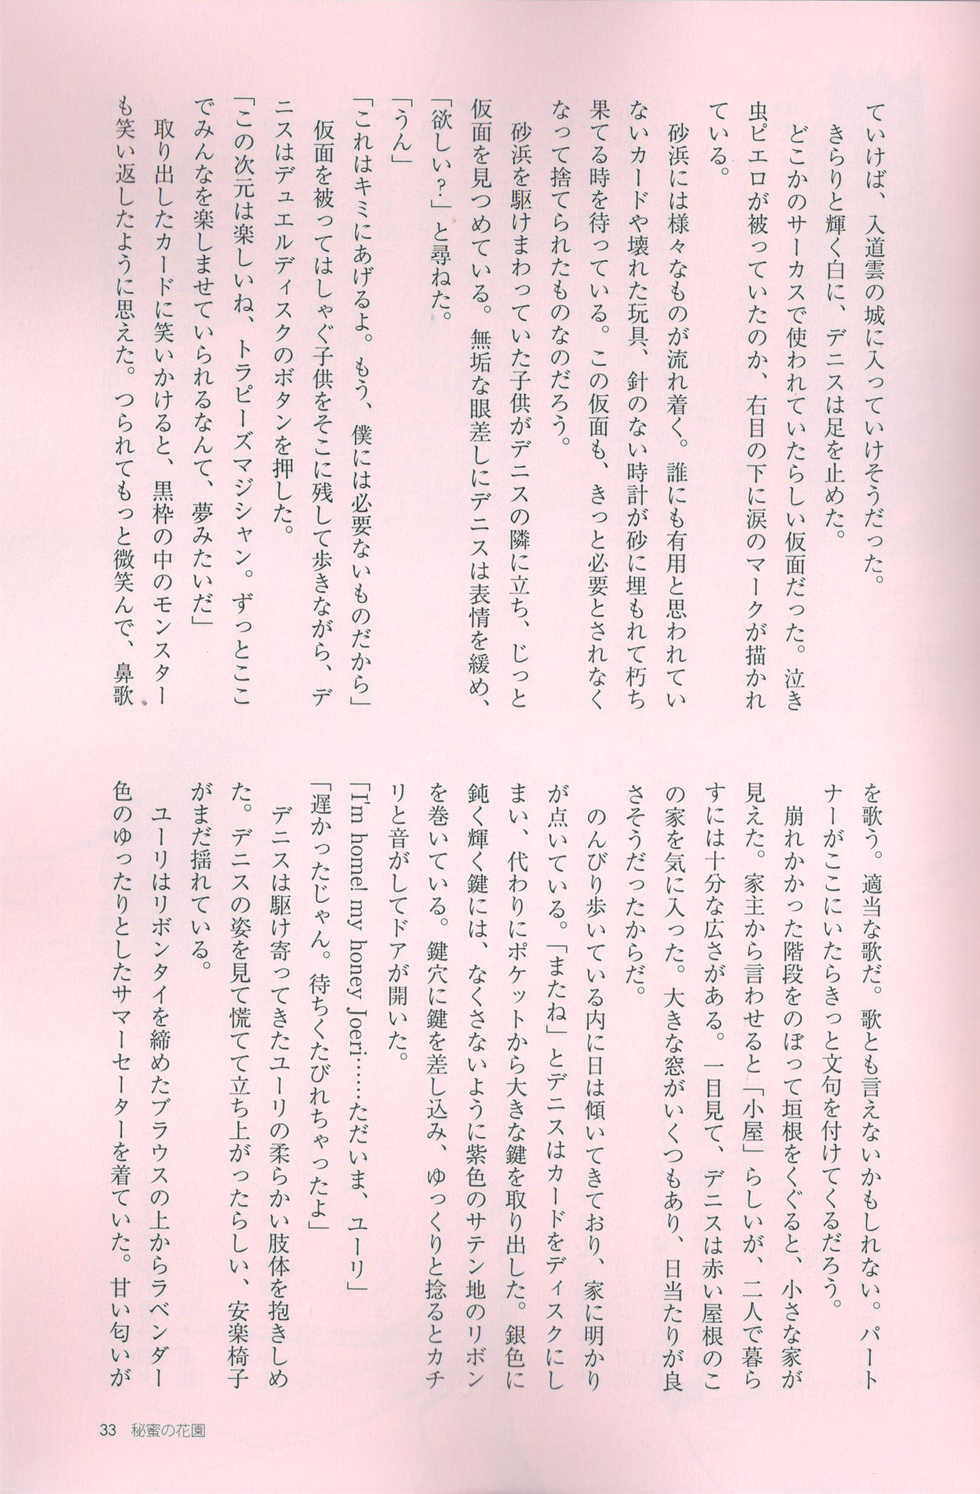 ていけば、入道雲の城に入っていけそうだった。
きらりと輝く白に、デニスは足を止めた。
どこかのサーカスで使われていたらしい仮面だった。泣き
虫ピエロが被っていたのか、右目の下に涙のマークが描かれ
ている。
砂浜には様々なものが流れ着く。誰にも有用と思われてい
ないカードや壊れた玩具、針のない時計が砂に埋もれて朽ち
果てる時を待っている。この仮面も、きっと必要とされなく
なって捨てられたものなのだろう。
砂浜を駆けまわっていた子供がデニスの隣に立ち、じっと
仮面を見つめている。無垢な眼差しにデニスは表情を緩め、
「欲しい？」と尋ねた。
「うん」
「これはキミにあげるよ。もう、僕には必要ないものだから」
仮面を被ってはしゃぐ子供をそこに残して歩きながら、デ
ニスはデュエルディスクのボタンを押した。
「この次元は楽しいね、トラピーズマジシャン。ずっとここ
でみんなを楽しませていられるなんて、夢みたいだ」
取り出したカードに笑いかけると、黒枠の中のモンスター
も笑い返したように思えた。つられてもっと微笑んで、鼻歌
を歌う。適当な歌だ。歌とも言えないかもしれない。パート
ナーがここにいたらきっと文句を付けてくるだろう。
崩れかかった階段をのぼって垣根をくぐると、小さな家が
見えた。家主から言わせると「小屋」らしいが、二人で暮ら
すには十分な広さがある。一目見て、デニスは赤い屋根のこ
の家を気に入った。大きな窓がいくつもあり、日当たりが良
さそうだったからだ。
のんびり歩いている内に日は傾いてきており、家に明かり
が点いている。「またね」とデニスはカードをディスクにし
まい、代わりにポケットから大きな鍵を取り出した。銀色に
鈍く輝く鍵には、なくさないように紫色のサテン地のリボン
を巻いている。鍵穴に鍵を差し込み、ゆっくりと捻るとカチ
リと音がしてドアが開いた。
「I'm home! my honey Joeri……ただいま、ユーリ」
「遅かったじゃん。待ちくたびれちゃったよ」
デニスは駆け寄ってきたユーリの柔らかい肢体を抱きしめ
た。デニスの姿を見て慌てて立ち上がったらしい、安楽椅子
がまだ揺れている。
ユーリはリボンタイを締めたブラウスの上からラベンダー
色のゆったりとしたサマーセーターを着ていた。甘い匂いが
33 秘蜜の花園